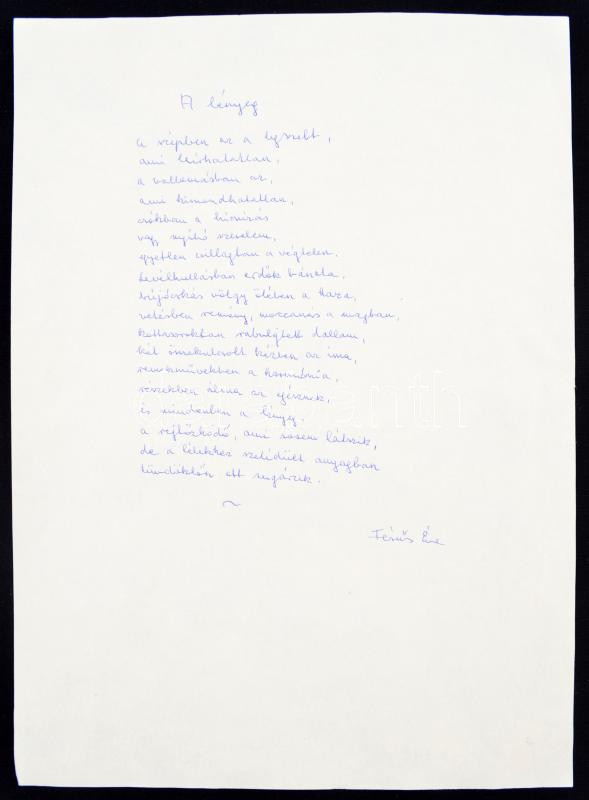 A lényeg
A szépben az a legszebb,
ami leírhatatlan,
a vallomásban az,
ami kimondhatatlan,
csókban a
vagy nyíló szerelem,
egyetlen csillagban a végtelen.
Levélhullásban erdők bánata,
völgy ölében a Haza,
vetésben remény, moccanás a magban,
kottasorokban rabulejtett dallam,
két összekulcsolt kézben az ima,
remekművekben a harmónia,
részekben álma az egésznek,
és mindenben a lényeg.
a rejtőzködő, ami sosem látszik,
de a lélekhez szelídült anyagban
tündöklőn ott sugárzik.
~
Fésűs Éva